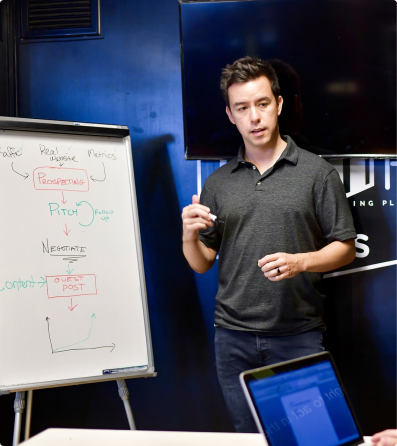 affic Real Metrics
website
PROSPECTING
PITCH Follow
up
NEGOTIATE
Content GUEST
POST
ING PL
S